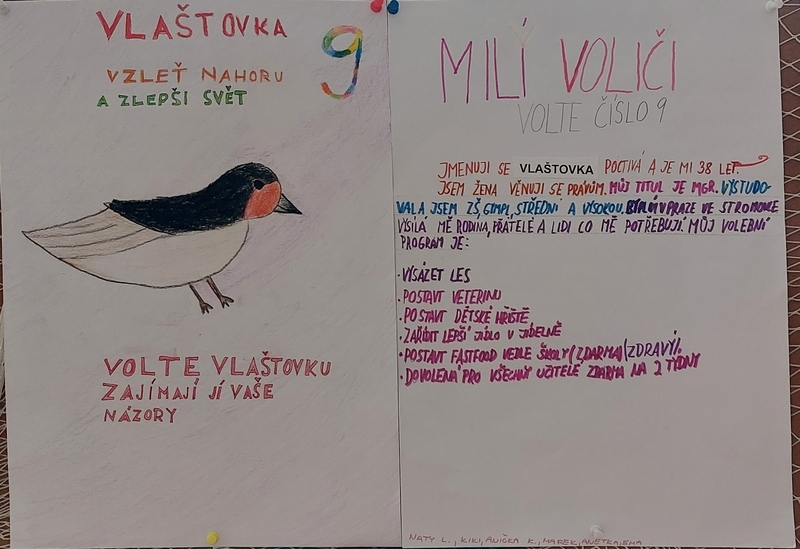 VLAŠTOVKA
9
VZLEŤ NAHORU
A ZLEPŠI SVĚT
VOLTE VLAŠTOVKU
ZAJÍMAJÍ JÍ VAŠE
NÁZORY
MILÍ VOLIČI
VOLTE ČÍSLO 9
JMENUJI SE VLAŠTOVKA POCTIVÁ A JE MI 38 LET.
JSEM ŽENA VĚNUJI SE PRÁVŮM. MŮJ TITUL JE MGR. VYSTUDO-
VALA JSEM ZŠ, GIMPL, STŘEDNÍ A VYSOKOU. BYDLÍM V PRAZE VE STROMOVCE
VYSÍLÁ MĚ RODINA, PŘÁTELÉ A LIDI CO MĚ POTŘEBUJÍ. MŮJ VOLEBNÍ
PROGRAM JE:
• VYSÁZET LES
• POSTAVIT VETERINU
• POSTAVIT DĚTSKÉ HŘIŠTĚ
• ZAŘÍDIT LEPŠÍ JÍDLO V JÍDELNĚ
• POSTAVIT FASTFOOD VEDLE ŠKOLY (ZDARMA) (ZDRAVÝ).
• DOVOLENÁ PRO VŠECHNY UČITELE ZDARMA NA 2 TÝDNY
NATY L., KIKI, ANIČKA K., MAREK, ANETKA, EMA